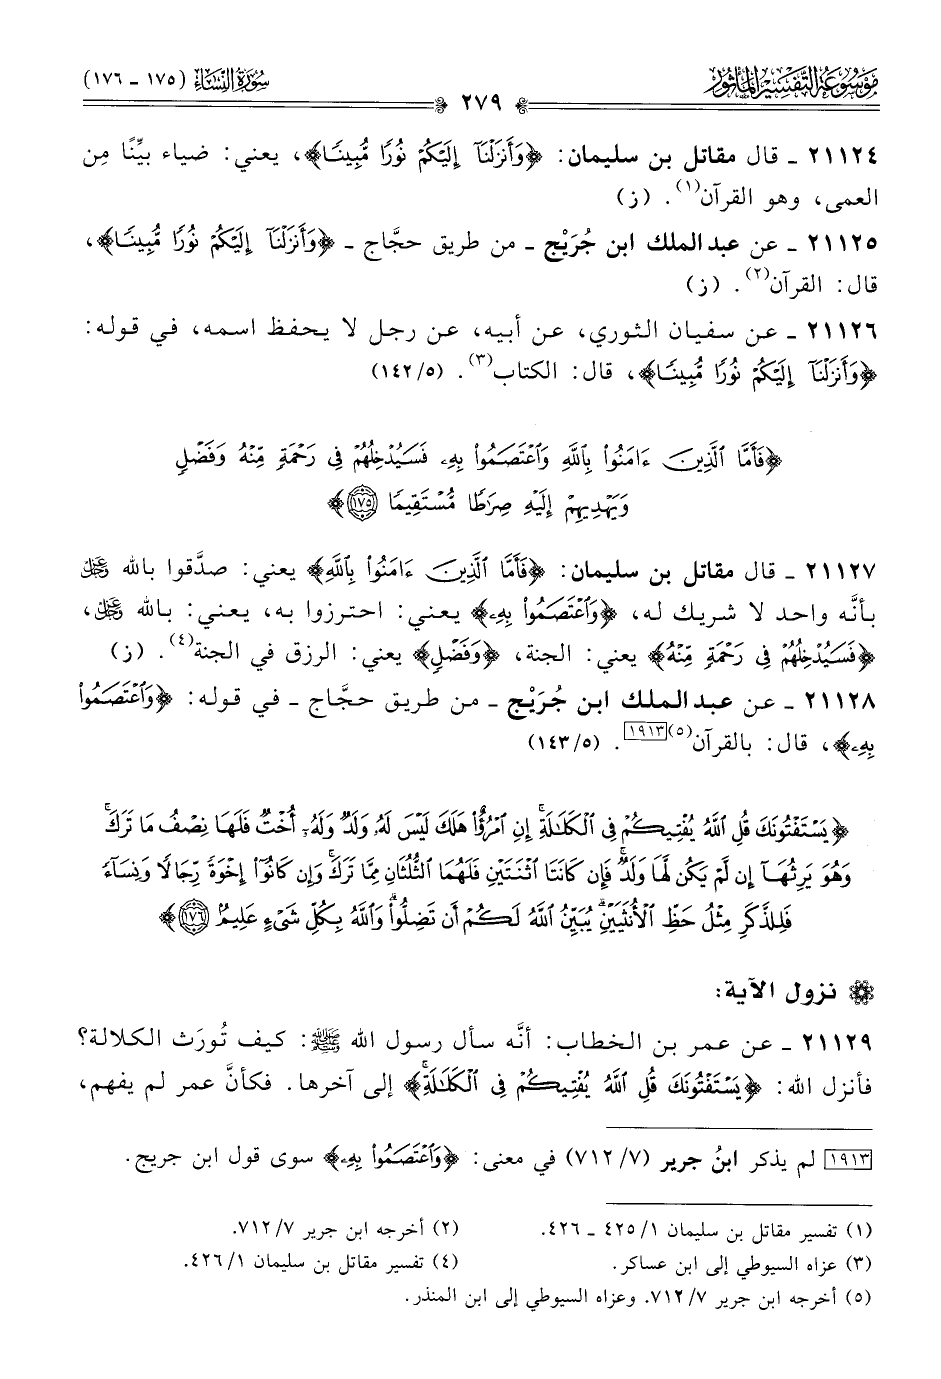 موسوعة التفسير المأثور
سورة النساء (١٧٥ - ١٧٦)
٢٧٩
٢١١٢٤ - قال مقاتل بن سليمان: ﴿وَأَنزَلۡنَآ إِلَيۡكُمۡ نُورٗا مُّبِينٗا﴾، يعني: ضياء بيِّنًا مِن
العمى، وهو القرآن(١). (ز)
٢١١٢٥ - عن عبد الملك ابن جُرَيْج - من طريق حجَّاج - ﴿وَأَنزَلۡنَآ إِلَيۡكُمۡ نُورٗا مُّبِينٗا﴾،
قال: القرآن(٢). (ز)
٢١١٢٦ - عن سفيان الثوري، عن أبيه، عن رجل لا يحفظ اسمه، في قوله:
﴿وَأَنزَلۡنَآ إِلَيۡكُمۡ نُورٗا مُّبِينٗا﴾، قال: الكتاب(٣). (١٤٢/٥)
﴿فَأَمَّا ٱلَّذِينَ ءَامَنُواْ بِٱللَّهِ وَٱعۡتَصَمُواْ بِهِۦ فَسَيُدۡخِلُهُمۡ فِي رَحۡمَةٖ مِّنۡهُ وَفَضۡلٖ
وَيَهۡدِيهِمۡ إِلَيۡهِ صِرَٰطٗا مُّسۡتَقِيمٗا ١٧٥﴾
٢١١٢٧ - قال مقاتل بن سليمان: ﴿فَأَمَّا ٱلَّذِينَ ءَامَنُواْ بِٱللَّهِ﴾ يعني: صدَّقوا بالله عز وجل
بأنَّه واحد لا شريك له، ﴿وَٱعۡتَصَمُواْ بِهِۦ﴾ يعني: احترزوا به، يعني: بالله عز وجل،
﴿فَسَيُدۡخِلُهُمۡ فِي رَحۡمَةٖ مِّنۡهُ﴾ يعني: الجنة، ﴿وَفَضۡلٖ﴾ يعني: الرزق في الجنة(٤). (ز)
٢١١٢٨ - عن عبد الملك ابن جُرَيْج - من طريق حجَّاج - في قوله: ﴿وَٱعۡتَصَمُواْ
بِهِۦ﴾، قال: بالقرآن(٥)[١٩١٣]. (١٤٣/٥)
﴿يَسۡتَفۡتُونَكَ قُلِ ٱللَّهُ يُفۡتِيكُمۡ فِي ٱلۡكَلَٰلَةِۚ إِنِ ٱمۡرُؤٌاْ هَلَكَ لَيۡسَ لَهُۥ وَلَدٞ وَلَهُۥٓ أُخۡتٞ فَلَهَا نِصۡفُ مَا تَرَكَۚ
وَهُوَ يَرِثُهَآ إِن لَّمۡ يَكُن لَّهَا وَلَدٞۚ فَإِن كَانَتَا ٱثۡنَتَيۡنِ فَلَهُمَا ٱلثُّلُثَانِ مِمَّا تَرَكَۚ وَإِن كَانُوٓاْ إِخۡوَةٗ رِّجَالٗا وَنِسَآءٗ
فَلِلذَّكَرِ مِثۡلُ حَظِّ ٱلۡأُنثَيَيۡنِۗ يُبَيِّنُ ٱللَّهُ لَكُمۡ أَن تَضِلُّواْۗ وَٱللَّهُ بِكُلِّ شَيۡءٍ عَلِيمُۢ ١٧٦﴾
نزول الآية:
٢١١٢٩ - عن عمر بن الخطاب: أنَّه سأل رسول الله ﷺ: كيف تُورَث الكلالة؟
فأنزل الله: ﴿يَسۡتَفۡتُونَكَ قُلِ ٱللَّهُ يُفۡتِيكُمۡ فِي ٱلۡكَلَٰلَةِۚ﴾ إلى آخرها. فكأنَّ عمر لم يفهم،
[١٩١٣] لم يذكر ابنُ جرير (٧١٢/٧) في معنى: ﴿وَٱعۡتَصَمُواْ بِهِۦ﴾ سوى قول ابن جريج.
(١) تفسير مقاتل بن سليمان ٤٢٥/١ - ٤٢٦. (٢) أخرجه ابن جرير ٧١٢/٧.
(٣) عزاه السيوطي إلى ابن عساكر. (٤) تفسير مقاتل بن سليمان ٤٢٦/١.
(٥) أخرجه ابن جرير ٧١٢/٧. وعزاه السيوطي إلى ابن المنذر.